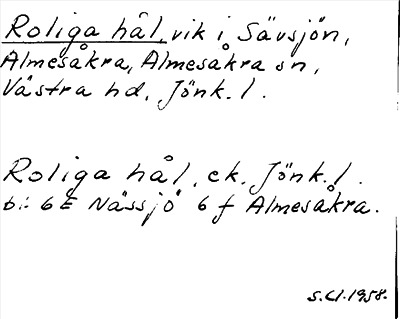 Roliga hål, vik i Sävsjön,
Almesåkra, Almesåkra sn,
Västra hd, Jönk. l.
Roliga hål, ek. Jönk. l.
bl. 6E Nässjö 6 f Almesåkra.
S.Cl. 1958.